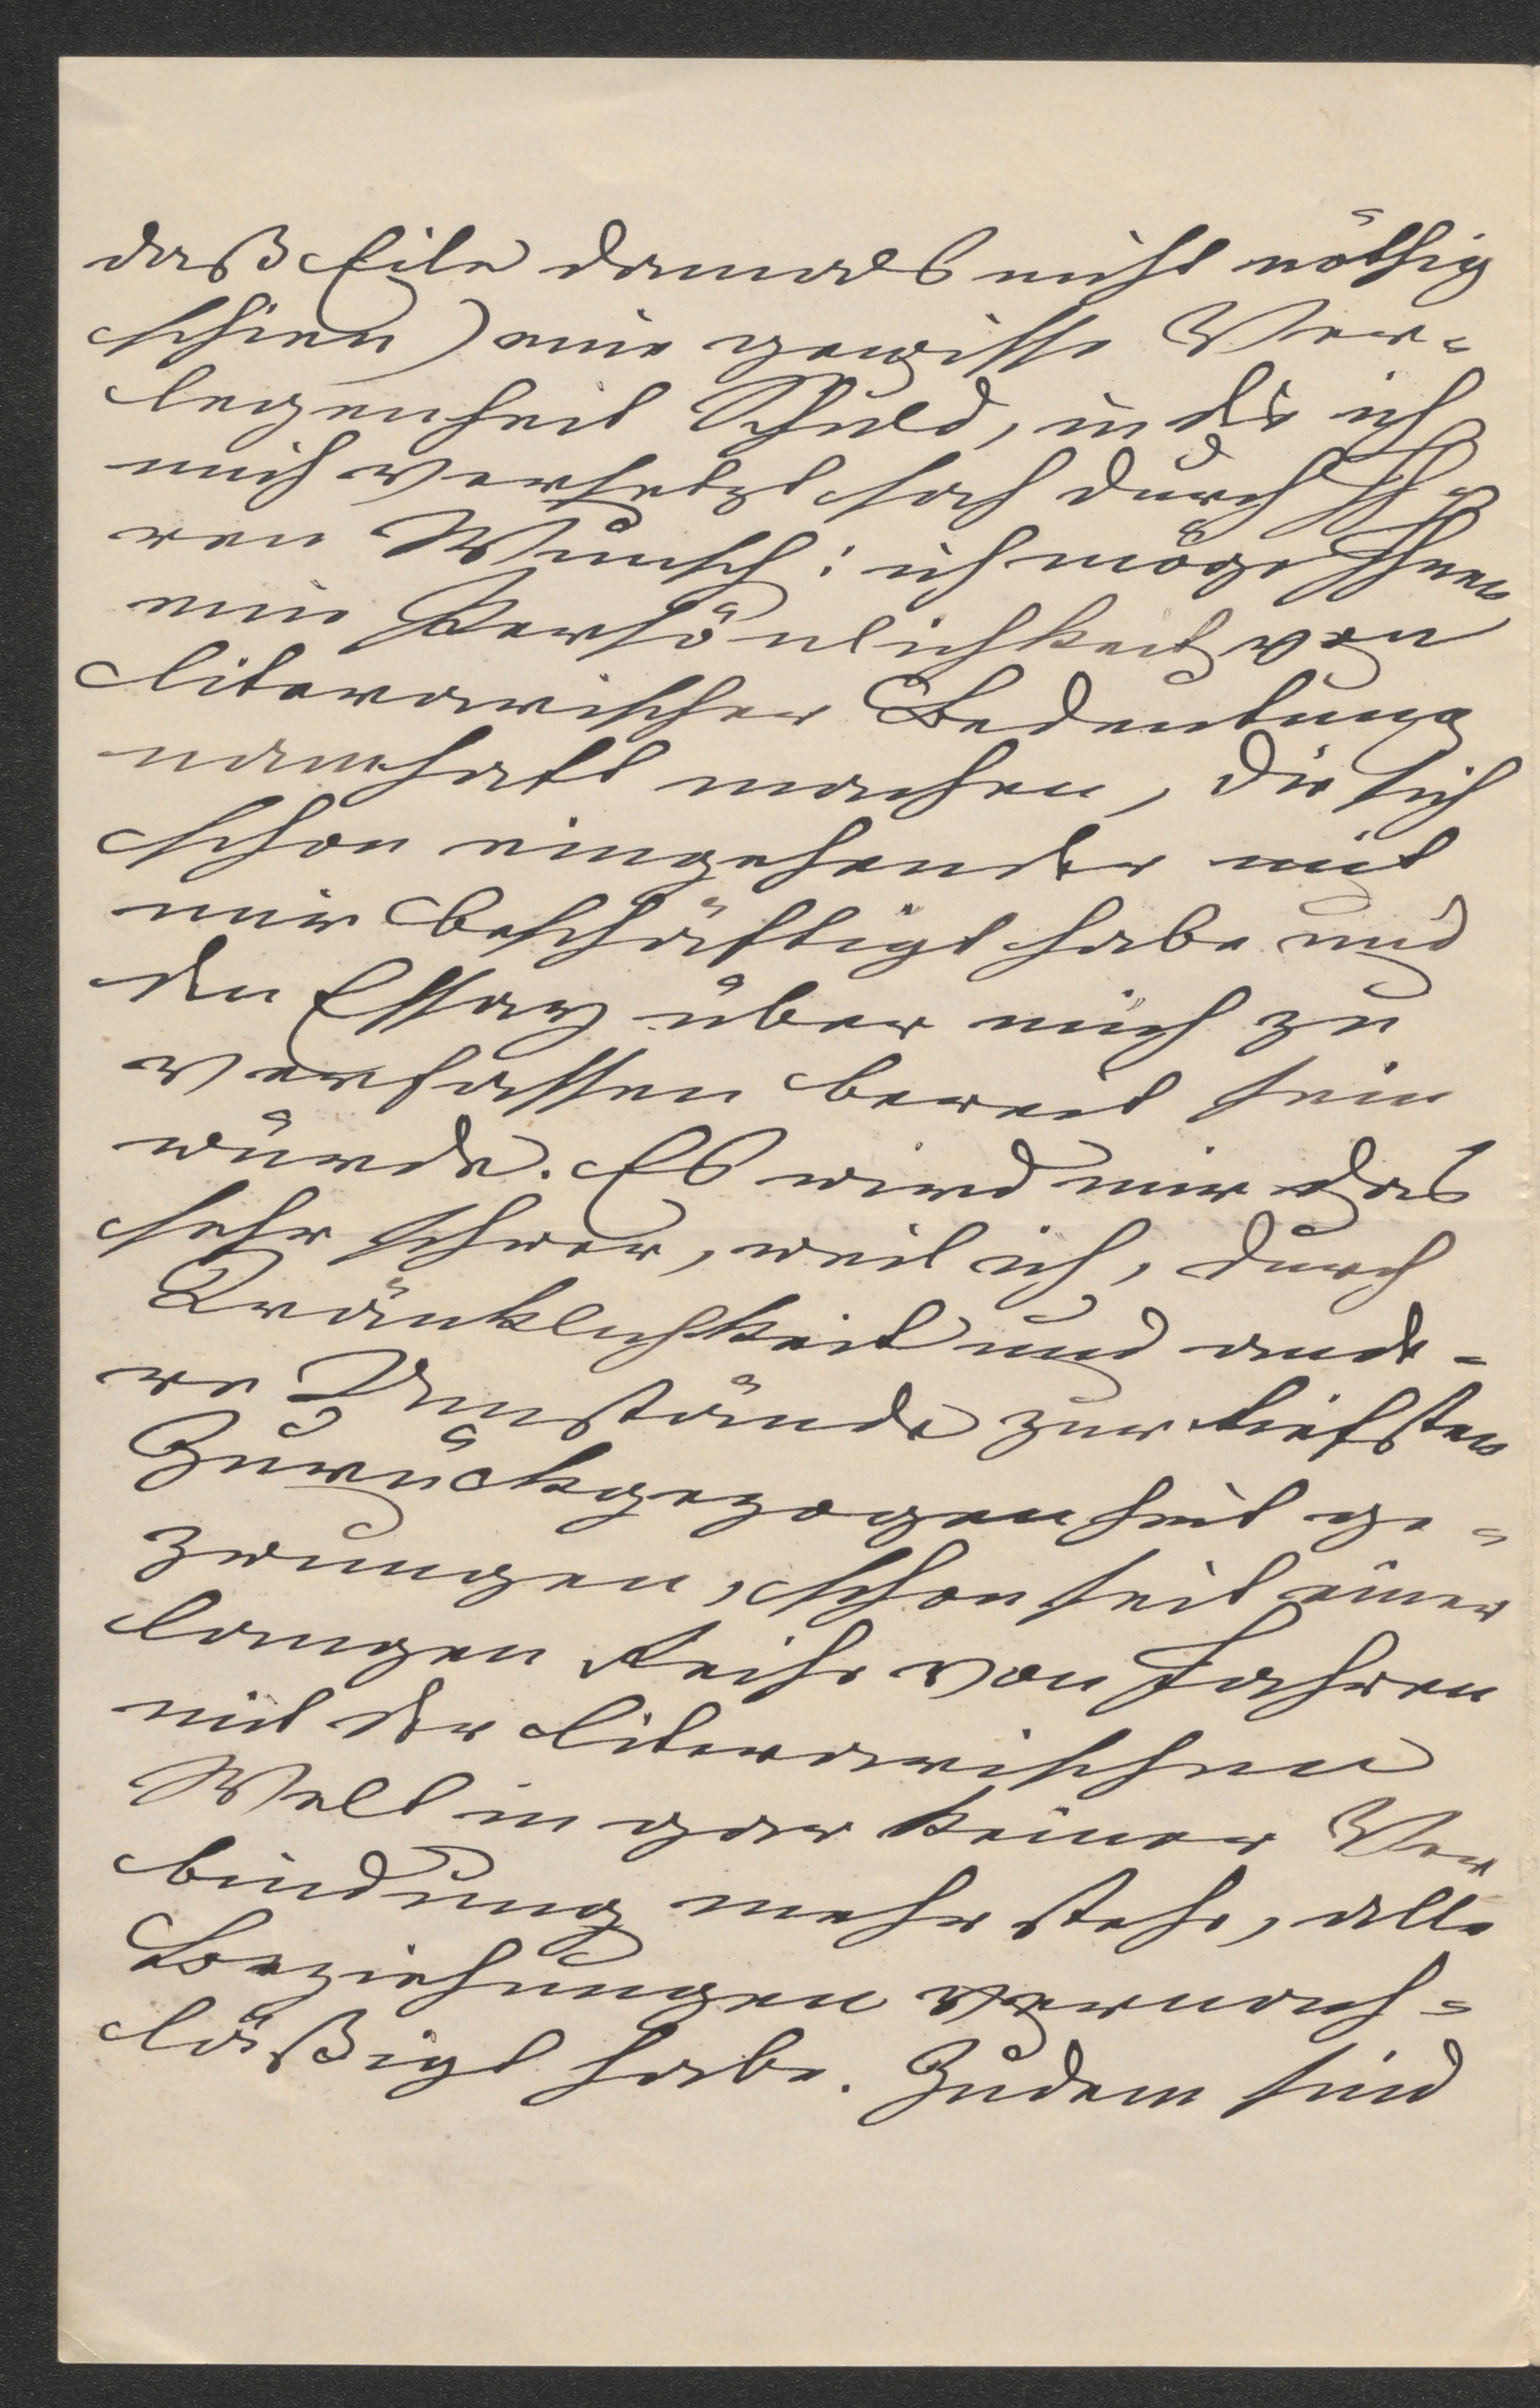 daß Eile damals nicht nöthig
schien) eine gewisse Ver-
legenheit Schuld, in die ich
mich versetzt sah durch Ih-
ren Wunsch: ich möge Ihnen
eine Persönlichkeit von
literarischer Bedeutung
namhaft machen, die sich
schon eingehender mit
mir beschäftigt habe und
den Essay über mich zu
verfassen bereit sein
würde. Es wird mir das
sehr schwer, weil ich, durch
Kränklichkeit und ande-
re Umstände zur tiefsten
Zurückgezogenheit ge-
zwungen, schon seit einer
langen Reihe von Jahren
mit der literarischen
Welt in gar keiner Ver
bindung mehr stehe, alle
Beziehungen vernach-
läßigt habe. Zudem sind